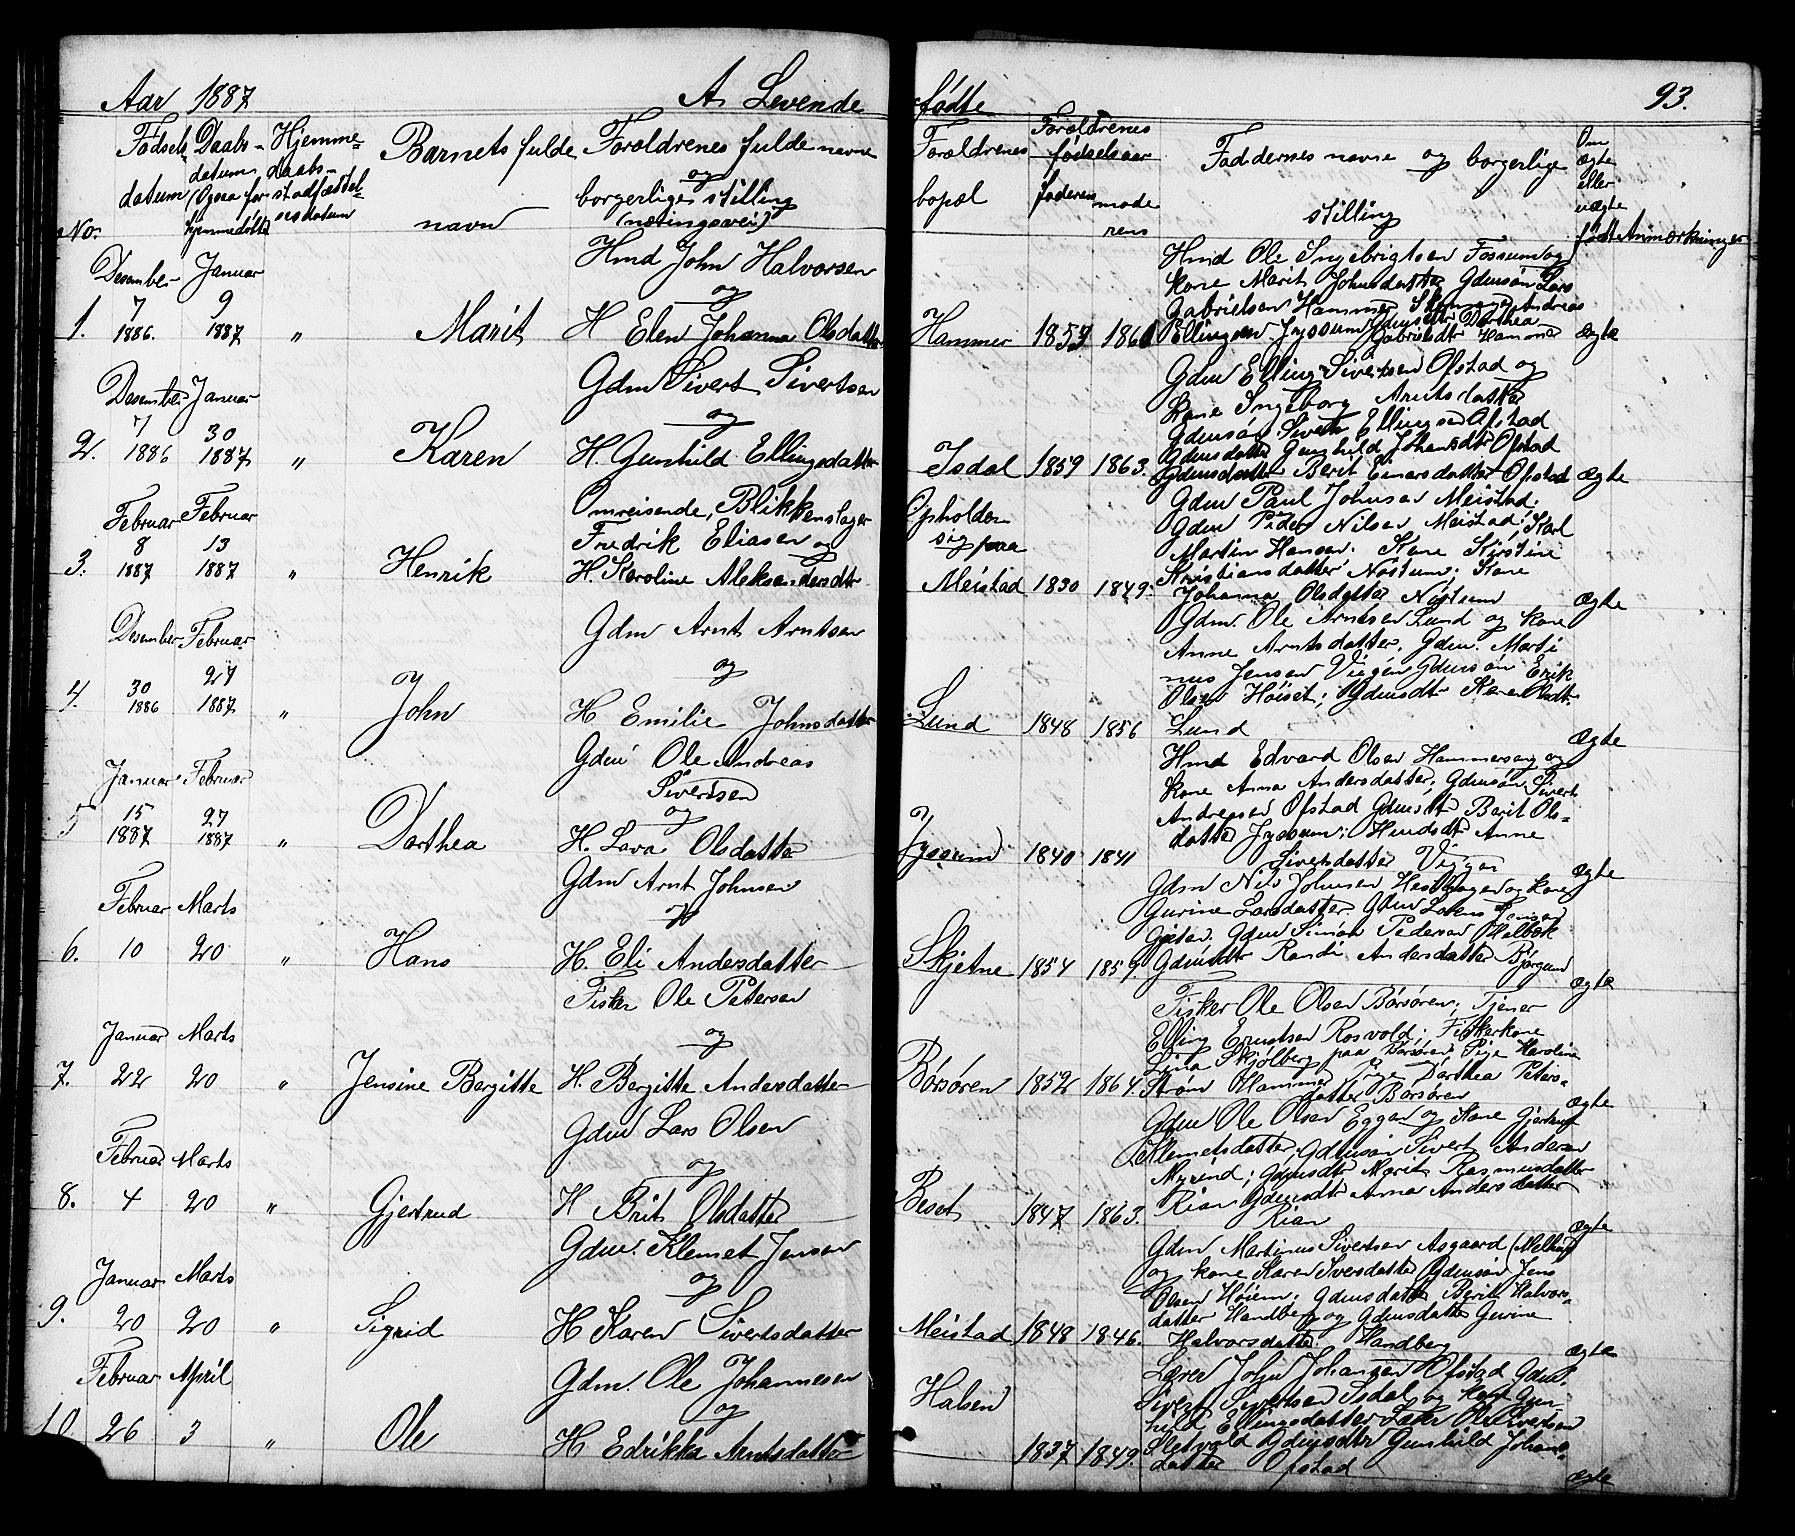 Aar 1887
A. Levende
fødte
93.
No.
Fødsels
datum
Daabs-
datum
(Ogsaa for
hjemmedøbte
Hjemme-
daabs-
stadfæstel-
sesdatum
Barnets fulde
navn
Forældrenes fulde navne
og
borgerlige stilling
(næringsvei)
Forældrenes
bopæl
Forældrenes
fødselsaar
faderens
mode
rens
Faddernes navne og borgerlige
stilling
Om
ægte
eller
uægte
født
Anmærkninger
Desember Januar
1. 7 9
1886. 1887 "
Marit
Hmd John Halvorsen
og
H Elen Johanna Olsdatter
Hammer 1857 1860
Hmd Ole Ingebrigtsen Fossum og
kone Marit Johnsdatter Gdmsøn Lars
Gabrielsen Hammer
Andreas
Ellingsen Jyssum
Dorthea
Gabrielsdtr Hammer
ægte
Desember Januar
7 30
2. 1886 1887 "
Karen
Gdm Sivert Sivertsen
og
H. Gunhild Ellingsdatter
Isdal 1859 1863.
Gdm Elling Sivertsen Ofstad og
kone Ingeborg Arntsdatter
Gdmsøn Sivert Ellingsen Ofstad
Gdmsdatter Gunhild Johansdtr Ofstad
Gdmsdatter Berit Einarsdatter Ofstad
ægte
Februar Februar
8 13
3. 1887 1887 "
Henrik
Omreisende, Blikkenslager
Fredrik Eliasen og
H. Karoline Aleksandersdtr
Opholder
sig paa
Meistad 1830 1849.
Gdm Paul Johnsen Meistad;
Gdm Peder Nilsen Meistad; Karl
Martin Hansen. Kone Kirstine
Kristiansdatter Nøstum. Kone
Johanna Olsdatter Nøstum
ægte
Desember Februar
4. 30 27
1886 1887 "
John
Gdm Arnt Arntsen
og
H Emilie Johnsdatter
Lund 1848 1856
Gdm Ole Arntsen Lund og kone
Anne Arntsdatter, Gdm. Marti
nus Jensen Viggen Gdmsøn Erik
Olsen Høiset; Gdmsdtr Karen
Lund
ægte
Januar Februar
5 15 27
1887 1887 "
Dorthea
Gdm Ole Andreas
Sivertsen
og
H. Lava Olsdatter
Jyssum 1840 1841
Hmd Edvard Olsen Hammerseng og
kone Anna Andersdatter; Gdmsøn Sivert
Andreasen Ofstad Gdmsdtr Berit Ols-
datter Jyssum; Hmdsdtr Anne
Sivertsdatter Viggen
ægte
Februar Marts
6. 10 20 "
Hans
Gdm Arnt Johnsen
og
H. Eli Andersdatter
Skjetne 1854 1859
Gdm Nils Johnsen Hesthagen og kone
Gurine Larsdatter. Gdm Lorens Jensen
Gjeten. Gdm Simon Pedersen Melbøk
Gdmsdtr Randi Andersdatter Bjørgum
ægte
Januar Marts
7. 22 20 "
Jensine Bergitte
Fisker Ole Petersen
og
H. Bergitte Andersdatter
Børsøren 1852 1864.
Fisker Ole Olsen Børsøren; Tjener
Elling Erntsen Rosvold; Fiskerkone
Lina Skjølberg paa Børsøren Pige Karoline
Strøm Hammer Pige Dorthea Peters-
datter Børsøren
ægte
Februar Marts
8. 4 20 "
Gjertrud
Gdm Lars Olsen
og
H Brit Olsdatter
Beset 1847 1863.
Gdm Ole Olsen Eggen og Kone Gjertrud
Klemetsdatter; Gdmsøn Sivert Andersen
Myrind; Gdmsdtr Marit Rasmusdatter
Rian Gdmsdtr Anna Andersdatter
Rian
ægte
Januar Marts
9. 20 20 "
Sigrid
Gdm. Klemet Jensen
og
H Karen Sivertsdatter
Meistad 1848 1846.
Gdm Martinus Sivertsen Asgaard (Melhus)
og kone Karen Iversdatter Gdmsøn Jens
Olsen Høiem; Gdmsdatter Berit Halvors-
datter Handberg og Gdmsdatter Gurine
Halvorsdatter Handberg
ægte
Februar April
10. 26 3 "
Ole
Gdm. Ole Johannesen
og
H Edrikka Arntsdatter
Halsen
1837 1849.
Lærer John Johansen Ofstad Gdm.
Sivert Sivertsen Isdal og kone Gun-
hild Ellingsdatter Lærer Ole Sivertsen
Sletvold Gdmsdtr Gunhild Johans-
datter Ofstad
ægte